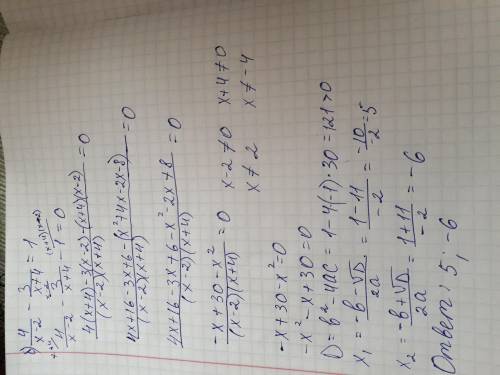 в) 4/(x-2) - 3/(x+4) = 1
4/(x-2) - 3/(x+4) - 1 = 0
(4(x+4)-3(x-2)-(x+4)(x-2))/((x-2)(x+4)) = 0
(4x+16-3x+6-(x²+4x-2x-8))/((x-2)(x+4)) = 0
(4x+16-3x+6-x²-2x+8)/((x-2)(x+4)) = 0
(-x+30-x²)/((x-2)(x+4)) = 0 x-2≠0 x+4≠0
x≠2 x≠-4
-x+30-x²=0
-x²-x+30=0
D=b²-4ac=1-4(-1)·30=121>0
x₁=(-b-√D)/2a=(1-11)/-2=-10/2=5
x₂=(-b+√D)/2a=(1+11)/-2=-6
Ответ: 5; -6